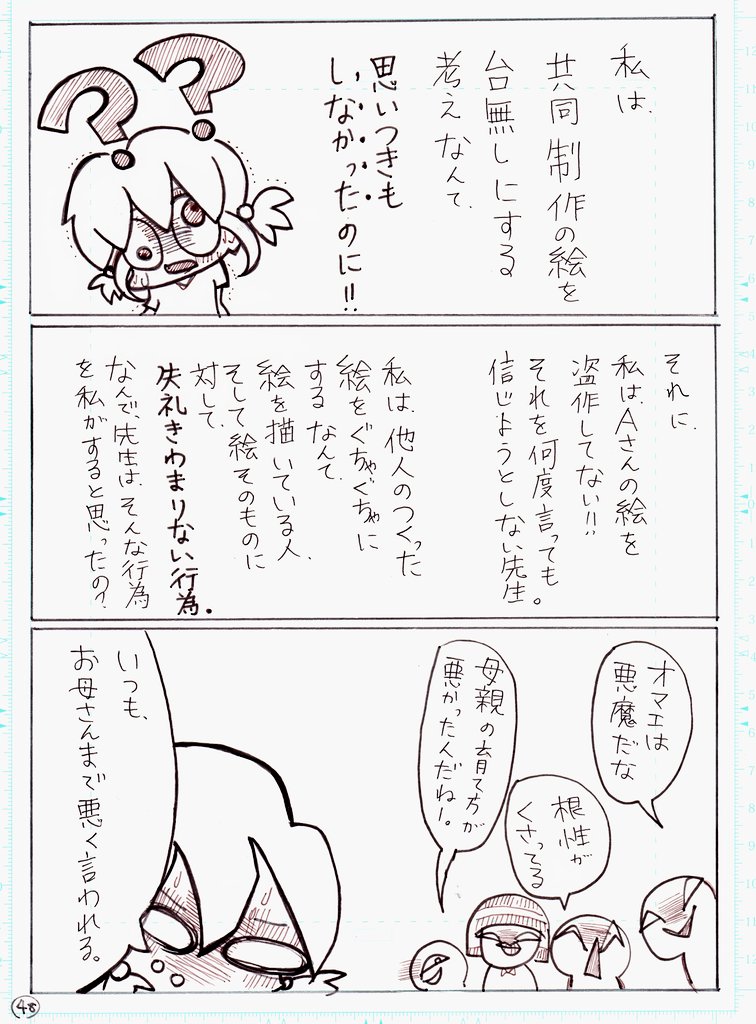 私は、
共同制作の絵を
台無しにする
考えなんて、
思いつきも
しなかったのに!!
それに、
私は、Aさんの絵を
盗作してない!!
それを何度言っても
信じようとしない先生。
私は、他人のつくった
絵をぐちゃぐちゃに
するなんて、
絵を描いている人、
そして絵そのものに
対して、
失礼きわまりない行為。
なんで、先生は、そんな行為
を私がすると思ったの?
オマエは
悪魔だな
根性が
くさってる
母親の育て方が
悪かったんだねー。
いつも、
お母さんまで悪く言われる。
48